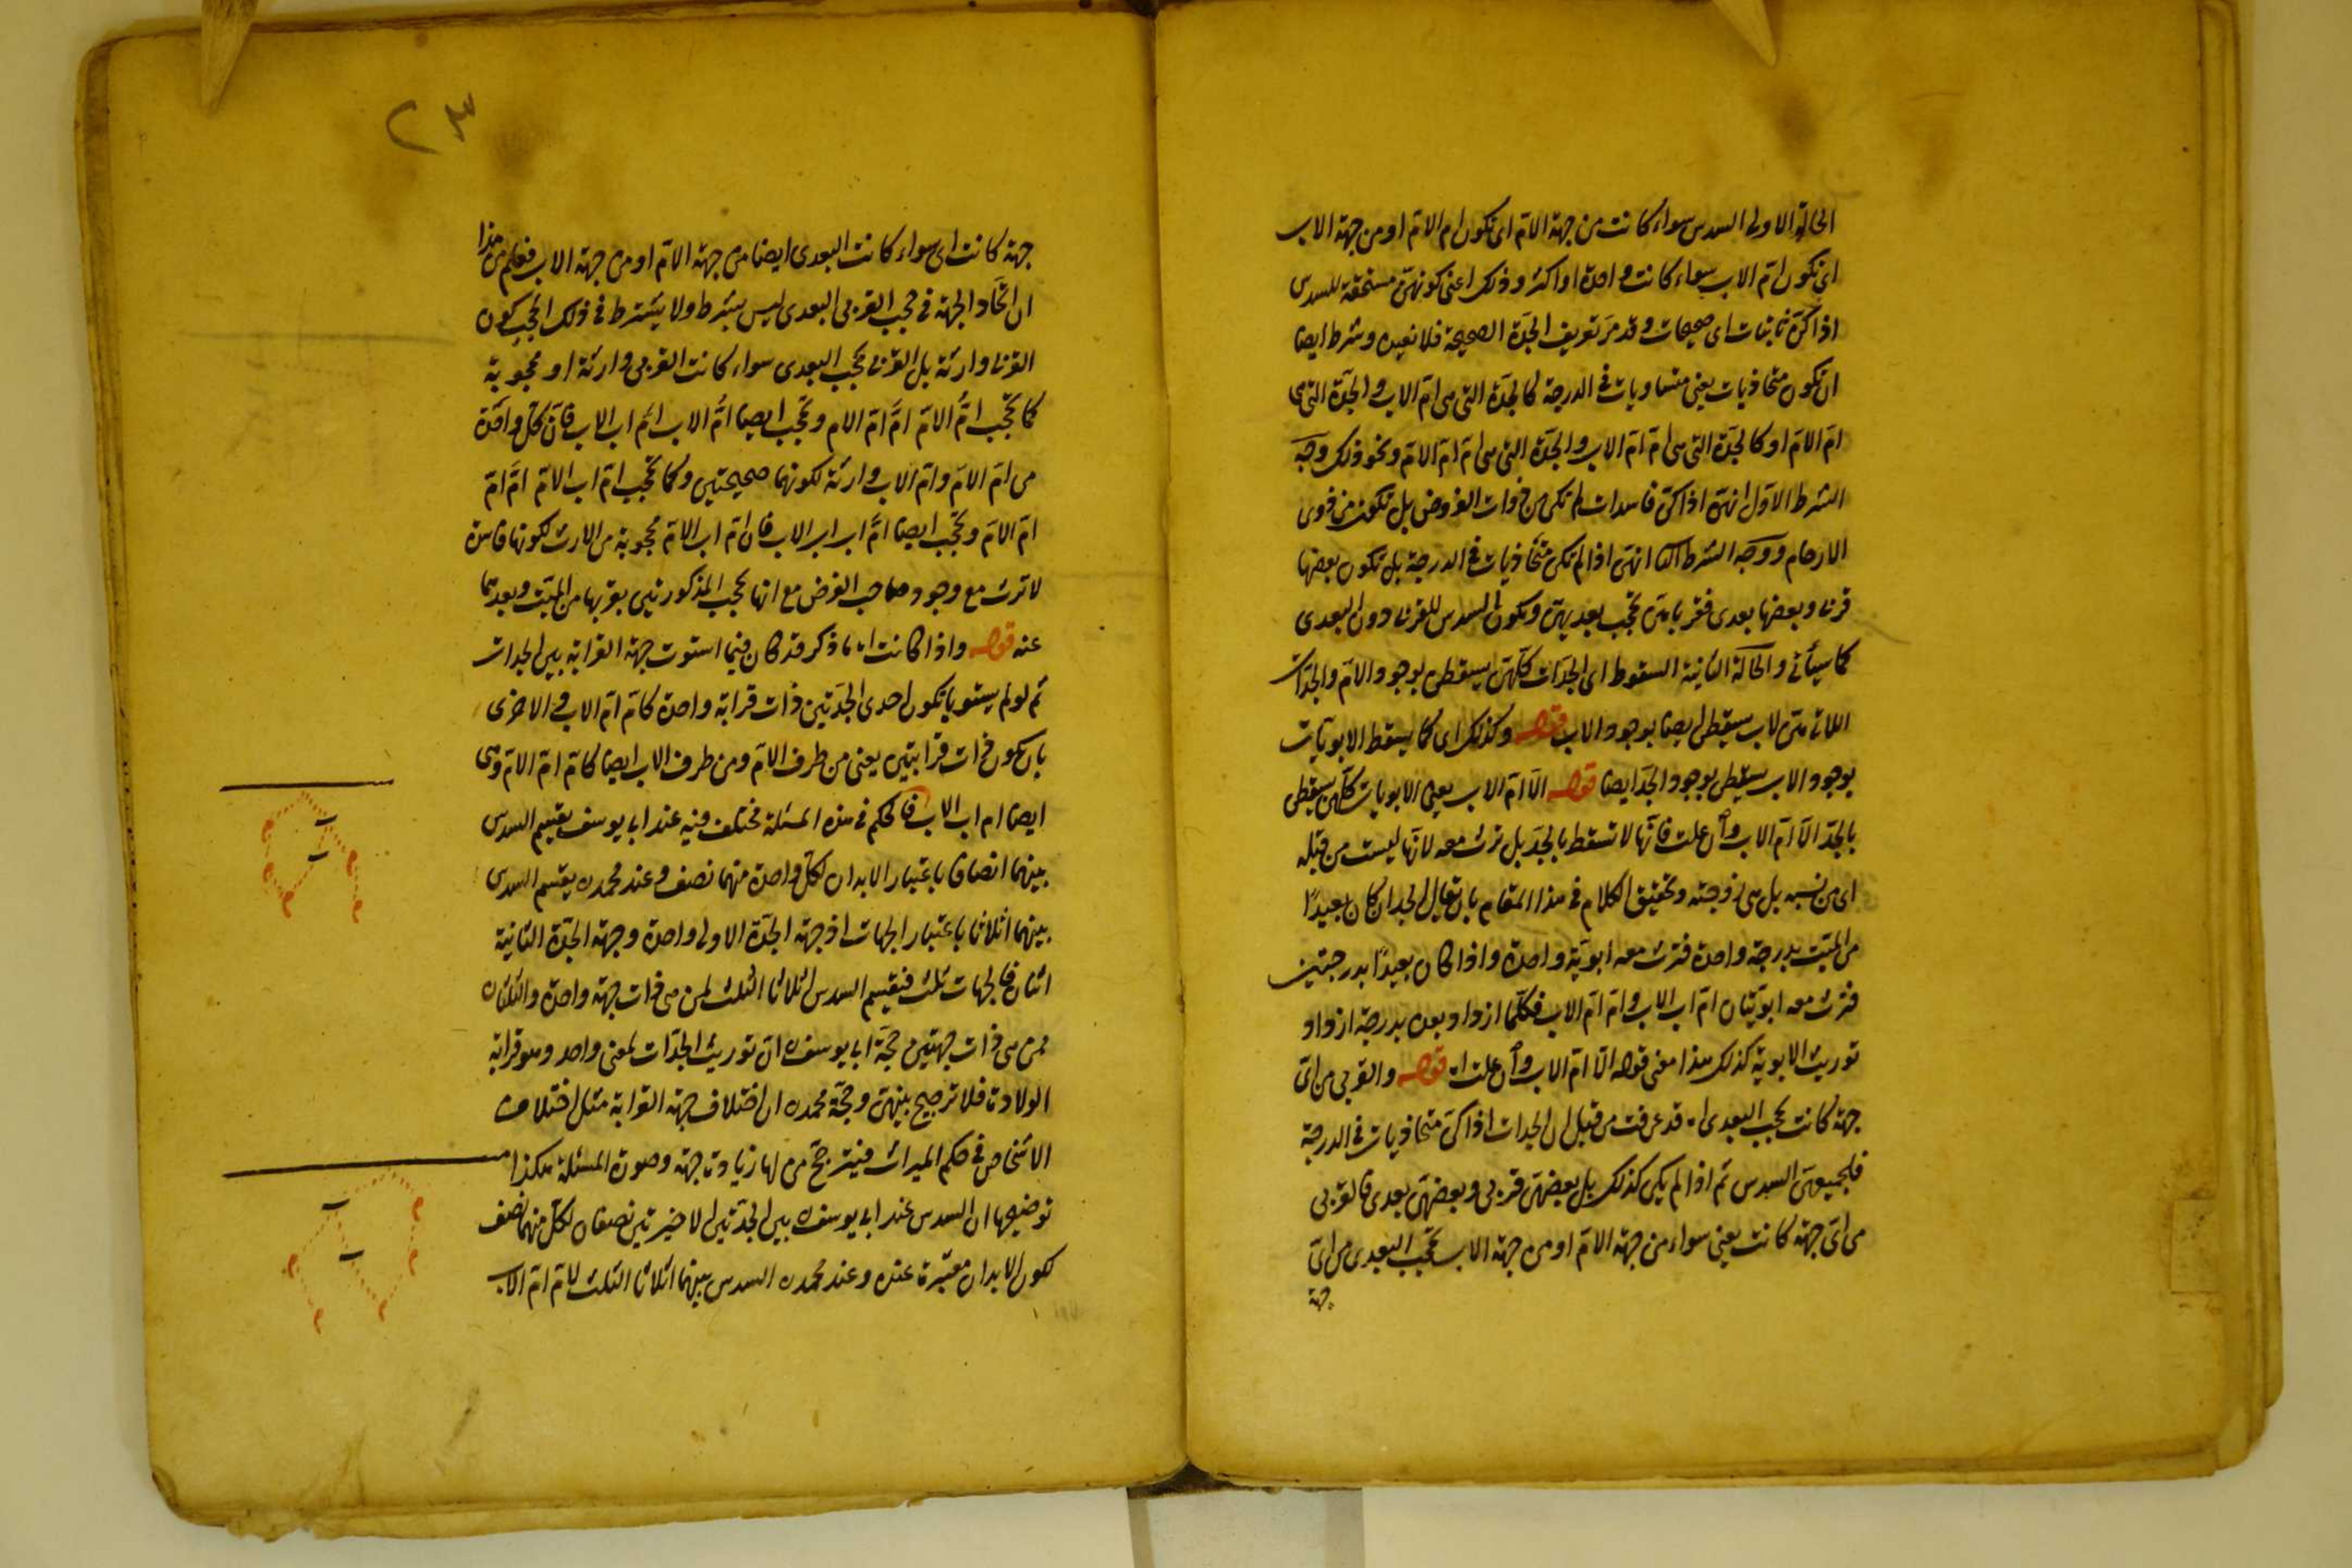 الحالة الاولى السدس سواء كانت من جهة الام اى تكون ام الام او من جهة الاب
اى تكون ام الاب سواء كانت واحدة او اكثر وذلك اعنى كونهن مستحقة للسدس
اذا كن ثابتات اى صحيحات وقد مر تعريف الجدة الصحيحة فلا نعيده وشرط ايضا
ان تكون متحاذيات يعنى متساويات فى الدرجة كالجدة التى هى ام الاب والجدة التى هى
ام الام او كالجدة التى هى ام ام الاب والجدة التى هى ام ام الام ونحو ذلك وجه
الشرط الاول انهن اذا كن فاسدات لم تكن من ذوات الفروض بل تكون من ذوى
الارحام ووجه الشرط الثا انهن اذا لم تكن متحاذيات فى الدرجة بل تكون بعضها
قربى وبعضها بعدى فقرباهن تحجب بعديهن وتكون السدس للقربى دون البعدى
كما سيأتى والحالة الثانية السقوط اى الجدات كلهن يسقطن بوجود الام والجدات
اللاتى هى لاب يسقطن ايضا بوجود الاب قوله وكذلك اى كما يسقط الابويات
بوجود الاب يسقطن بوجود الجد ايضا قوله الا ام الاب يعنى الابويات كلهن يسقطن
بالجد الا ام الاب وان علت فانها لا تسقط بالجد بل ترث معه لانها ليست من قبله
اى من نسبه بل هى زوجته وتحقيق الكلام فى هذا المقام بان يقال الجد ان كان بعيدًا
من الميت بدرجة واحدة فترث معه ابوية واحدة واذا كان بعيدًا بدرجتين
فترث معه ابويتان ام اب الاب وام ام الاب فكلما ازداد بعده بدرجة ازداد
توريث الابوية كذلك هذا معنى قوله الا ام الاب وان علت اه قوله والقربى من اى
جهة كانت تحجب البعدى اه قد عرفت من قبل ان الجدات اذا كن متحاذيات فى الدرجة
فلجميعهن السدس ثم اذا لم يكن كذلك بل بعضهن قربى وبعضهن بعدى فالقربى
من اى جهة كانت يعنى سواء من جهة الام او من جهة الاب تحجب البعدى من اى
جهة
٢٣
جهة كانت اى سواء كانت البعدى ايضا من جهة الام او من جهة الاب فعلم من هذا
ان اتحاد الجهة فى حجب القربى البعدى ليس بشرط ولا يشترط فى ذلك الحجب كون
القربى وارثة بل القربى تحجب البعدى سواء كانت القربى وارثة او محجوبة
كما تحجب ام الام ام ام الام وتحجب ايضا ام الاب ام اب الاب فان كل واحدة
من ام الام وام الاب وارثة لكونهما صحيحتين وكما تحجب ام اب الام ام ام
ام الام وتحجب ايضا ام اب اب الاب فان ام اب الام محجوبة من الارث لكونها فاسدة
لا ترث مع وجود صاحب الفرض مع انها تحجب المذكورتين بقربها من الميت وبعدهما
عنه قوله واذا كانت اه ما ذكر قد كان فيما استوت جهة القرابة بين الجدات
ثم لو لم يستويا بان تكون احدى الجدتين ذات قرابة واحدة كام ام الاب والاخرى
بان تكون ذات قرابتين يعنى من طرف الام ومن طرف الاب ايضا كام ام الام وهى
ايضا ام اب الاب فالحكم فى هذه المسئلة مختلف فيه عند ابى يوسف يقسم السدس
بينهما انصافا باعتبار الابدان لكل واحدة منهما نصف وعند محمد ره يقسم السدس
بينهما اثلاثا باعتبار الجهات اذ جهة الجدة الاولى واحدة وجهة الجدة الثانية
اثنان فالجهات ثلث فيقسم السدس اثلاثا الثلث لمن هى ذات جهة واحدة والثلثان
لمن هى ذات جهتين حجة ابى يوسف ره ان توريث الجدات لمعنى واحد وهو قرابة
الولادة فلا ترجيح بينهن وحجة محمد ره ان اختلاف جهة القرابة مثل اختلاف
الاشخاص فى حكم الميراث فيترجح من لها زيادة جهة وصورة المسئلة هكذا
توضيحها ان السدس عند ابى يوسف ره بين الجدتين الاخيرتين نصفان لكل منهما نصف
لكون الابدان معتبرة عنده وعند محمد ره السدس بينهما اثلاثا الثلث لام ام الاب